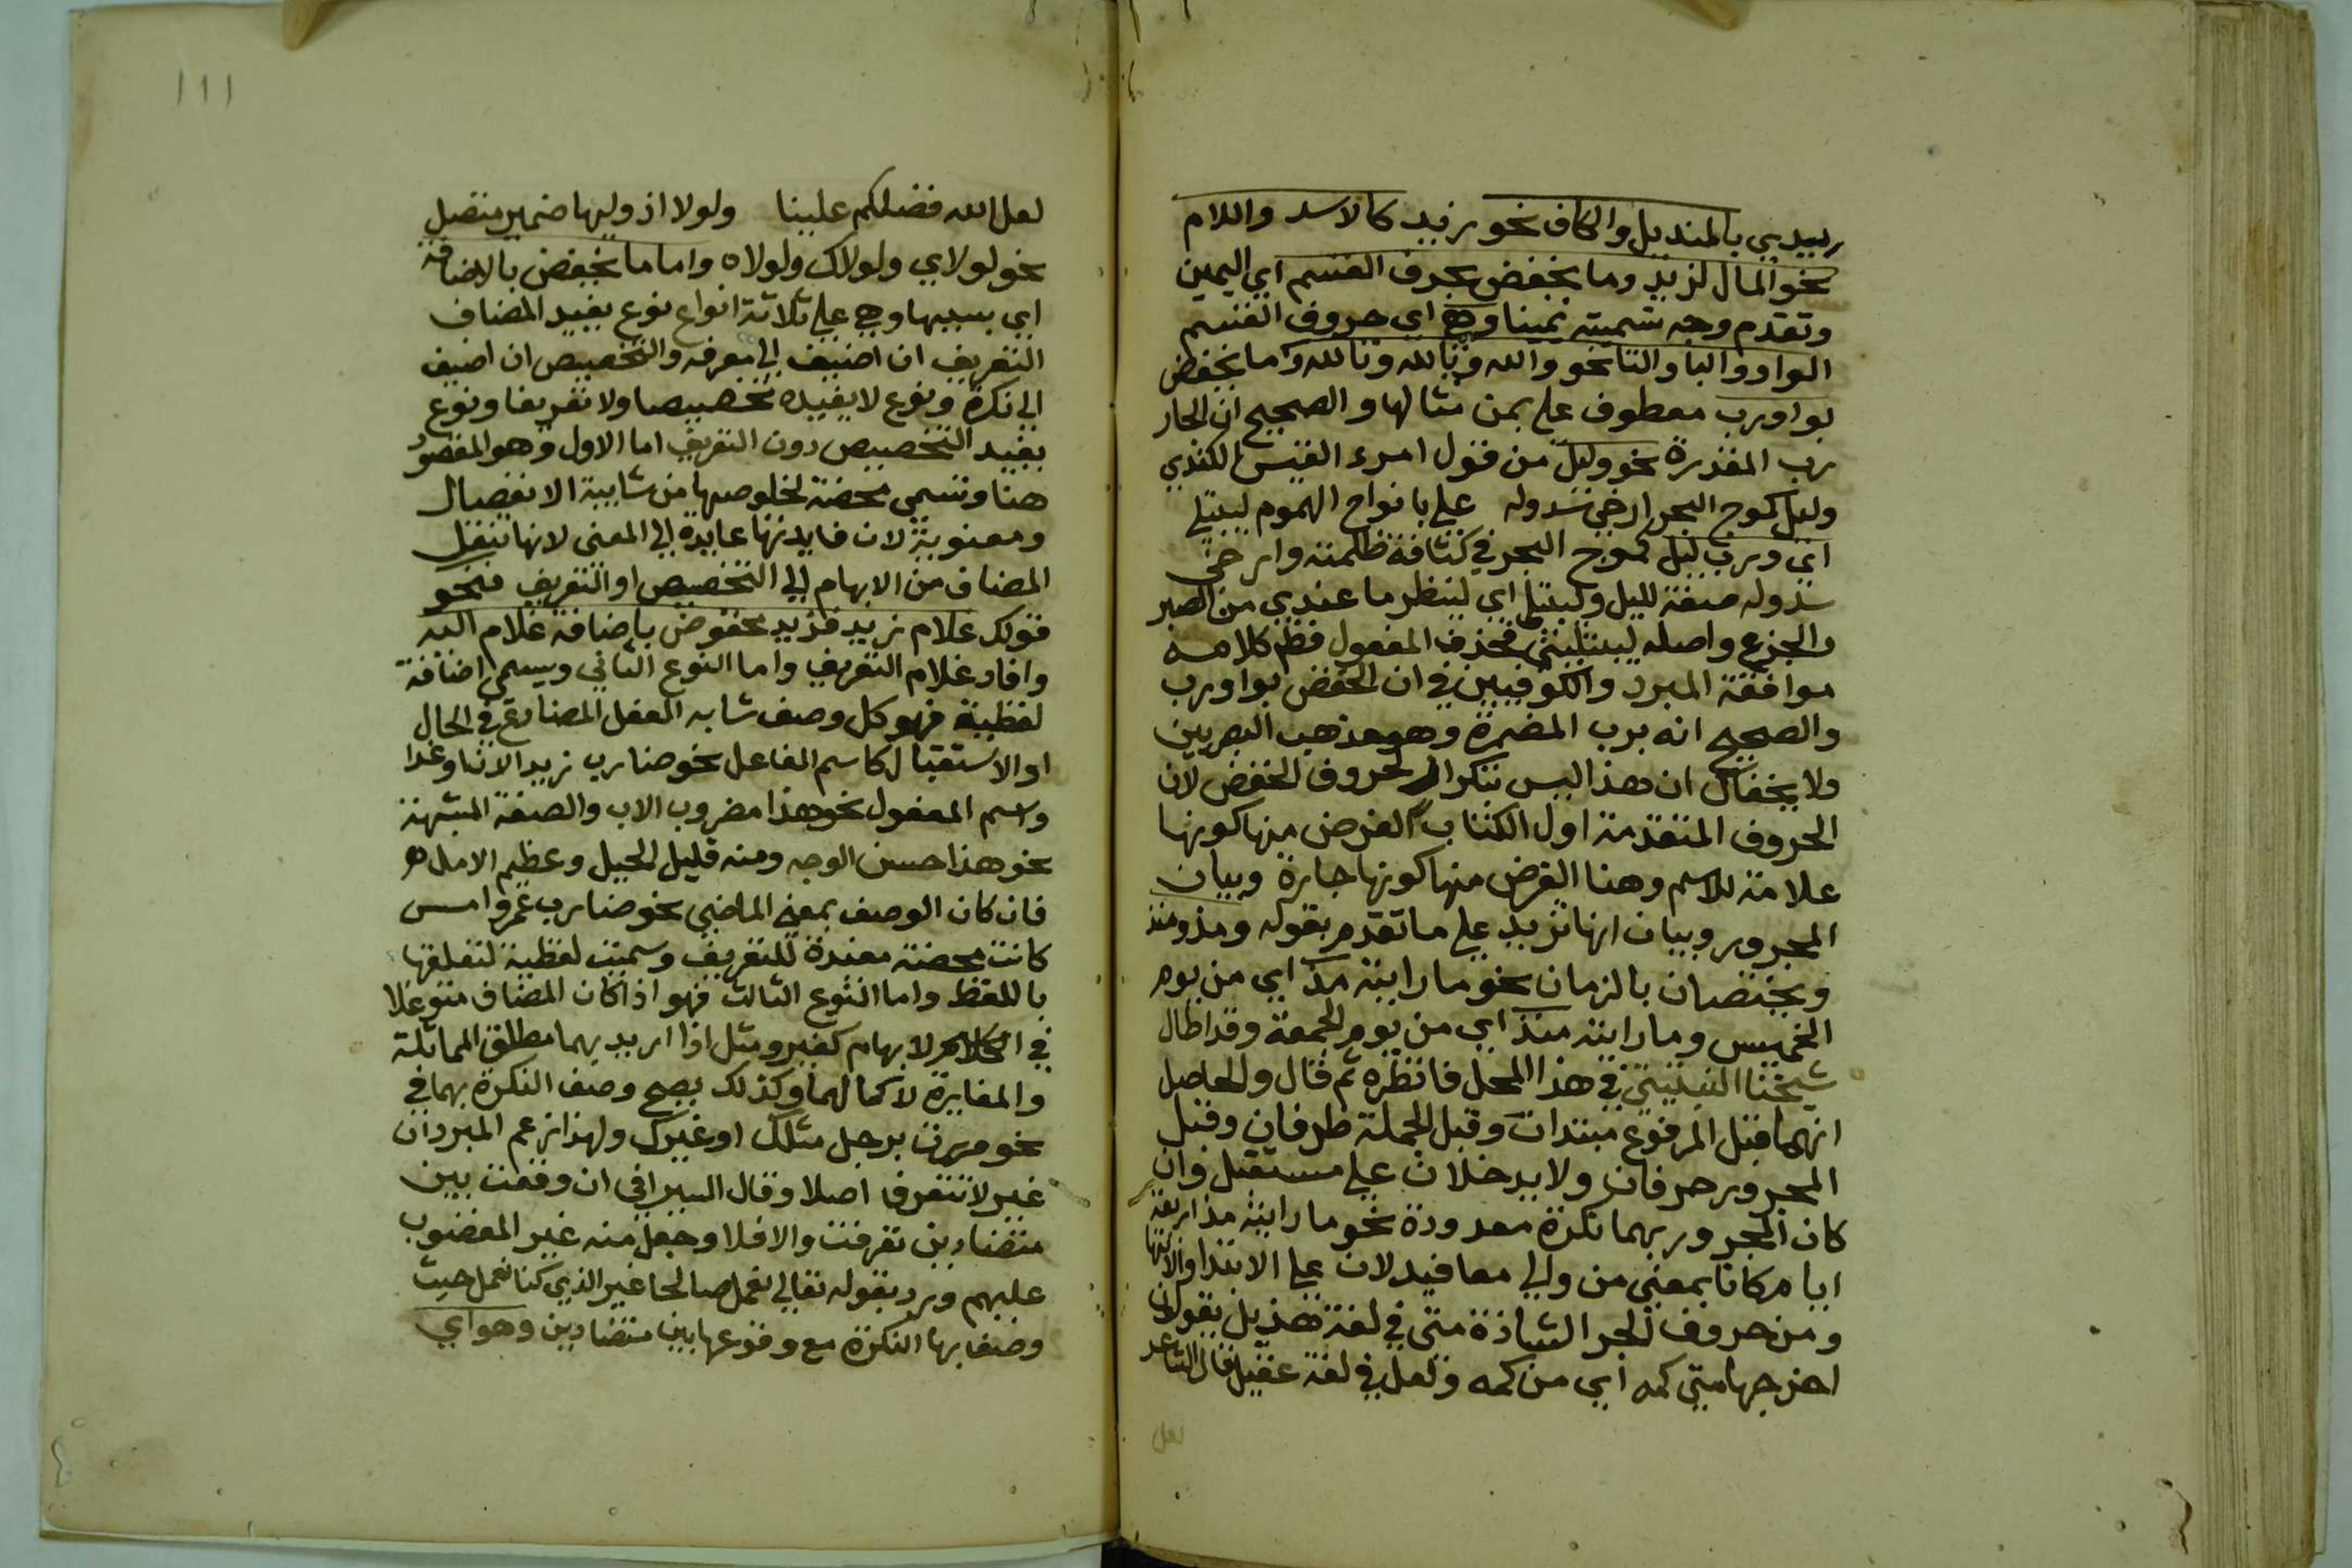 يدي بالمنديل والكاف نحو زيد كالاسد واللام
نحو المال لزيد وما يخفض بحرف القسم اي اليمين
وتقدم وجه تسميته يمينا وهي اي حروف القسم
الواو والبا والتا نحو والله وبالله وتالله وما يخفض
بواو رب معطوف على بمن مثالها والصحيح ان الجار
رب المقدرة نحو وليل من قول امرء القيس الكندي
وليل كموج البحر ارخى سدوله على بانواع الهموم ليبتلي
اي ورب ليل كموج البحر في كثافة ظلمته وارخى
سدوله صفة لليل وليبتلي اي لينظر ما عندي من الصبر
والجزع واصله ليبتليني فحذف المفعول فظهر كلامه
موافقة المبرد والكوفيين في ان الخفض بواو رب
والصحيح انه برب المضمرة وهو مذهب البصريين
ولا يخفاك ان هذا ليس بتكرار لحروف الخفض لان
الحروف المتقدمة اول الكتاب الغرض منها كونها
علامة للاسم وهنا الغرض منها كونها جارة وبيان
المجرور وبيان انها تزيد على ما تقدم بقوله ومذ ومنذ
ويختصان بالزمان نحو ما رايته مذ اي من يوم
الخميس وما رايته منذ اي من يوم الجمعة وقد اطال
شيخنا في هذا المحل فانظره ثم قال والحاصل
انهما قبل المرفوع مبتدات وقبل الجملة ظرفان وقبل
المجرور حرفان ولا يدخلان على مستقبل وان
كان المجرور بهما نكرة معدودة نحو ما رايته مذ اربعة
ايام كانا بمعنى من والى معا فيدلان على الابتدا والانتها
ومن حروف الجر الشاذة متى في لغة هذيل يقولون
اخرجها متى كمه اي من كمه ولعل في لغة عقيل قال الشاعر
لعل
111
لعل الله فضلكم علينا ولولا اذ وليها ضمير متصل
نحو لولاي ولولاك ولولاه واما ما يخفض بالاضافة
اي بسببها وهي على ثلاثة انواع نوع يفيد المضاف
التعريف ان اضيف الى معرفه والتخصيص ان اضيف
الى نكرة ونوع لا يفيده تخصيصا ولا تعريفا ونوع
يفيد التخصيص دون التعريف اما الاول وهو المقصود
هنا وتسمى محضة لخلوصها من شايبة الانفصال
ومعنوية لان فايدتها عايدة الى المعنى لانها تنقل
المضاف من الابهام الى التخصيص او التعريف فنحو
قولك غلام زيد فزيد مخفوض باضافة غلام اليه
وافاد غلام التعريف واما النوع الثاني ويسمى اضافة
لفظية فهو كل وصف شابه الفعل المضارع في الحال
او الاستقبال كاسم الفاعل نحو ضارب زيد الان او غدا
واسم المفعول نحو هذا مضروب الاب والصفة المشبهة
نحو هذا حسن الوجه ومنه قليل الحيل وعظيم الامل
فان كان الوصف بمعنى الماضي نحو ضارب عمرو امس
كانت محضة مفيدة للتعريف وسميت لفظية لتعلقها
باللفظ واما النوع الثالث فهو اذا كان المضاف متوغلا
في الابهام كغير ومثل اذا اريد بهما مطلق المماثلة
والمغايرة لا كمالهما وكذلك يصح وصف النكرة بهما في
نحو مررت برجل مثلك او غيرك ولهذا زعم المبرد ان
غير لا تتعرف اصلا وقال السيرافي ان وقعت بين
متضادين تعرفت والا فلا وجعل منه غير المغضوب
عليهم ويرد بقوله تعالى نعمل صالحا غير الذي كنا نعمل حيث
وصف بها النكرة مع وقوعها بين متضادين وهو اي